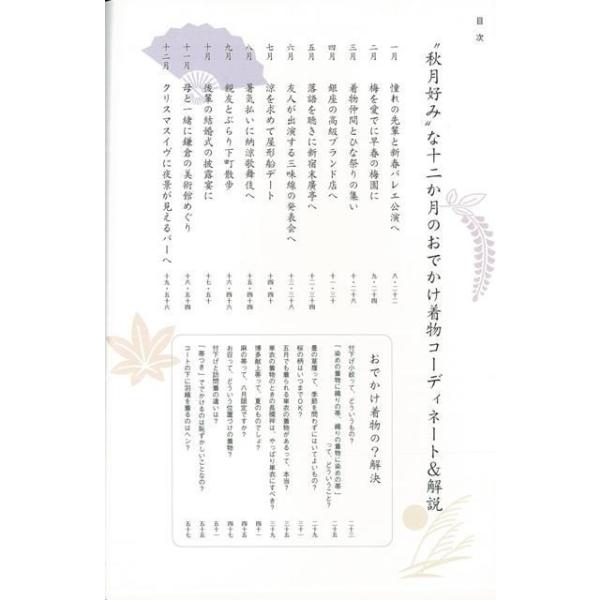 目次
"秋月好み"な十二か月のおでかけ着物コーディネート&解説
一月 憧れの先輩と新春バレエ公演へ 八・二十二
二月 梅を愛でに早春の梅園に 九・二十四
三月 着物仲間とひな祭りの集い 十・二十六
四月 銀座の高級ブランド店へ 十一・三十
五月 落語を聴きに新宿末廣亭へ 十二・三十四
六月 友人が出演する三味線の発表会へ 十三・三十八
七月 涼を求めて屋形船デート 十四・四十
八月 暑気払いに納涼歌舞伎へ 十五・四十四
九月 親友とぶらり下町散歩 十六・四十六
十月 後輩の結婚式の披露宴に 十七・五十
十一月 母と一緒に鎌倉の美術館めぐり 十八・五十四
十二月 クリスマスイヴに夜景が見えるバーへ 十九・五十六
おでかけ着物の?解決
付下げ小紋って、どういうもの? 二十三
「染めの着物に織りの帯、織りの着物に染めの帯」
って、どういうこと? 二十五
畳の草履って、季節を問わずにはいてよいもの? 二十九
桜の柄はいつまでOK? 三十一
五月でも着られる単衣の着物があるって、本当? 三十五
単衣の着物のときの長襦袢は、やっぱり単衣にすべき? 三十九
博多献上帯って、夏のものでしょ? 四十一
麻の帯って、八月限定ですか? 四十五
お召って、どういう位置づけの着物? 四十七
付下げと訪問着の違いは? 五十一
「帯つき」ででかけるのは恥ずかしいことなの? 五十五
コートの下に羽織を着るのはヘン? 五十七